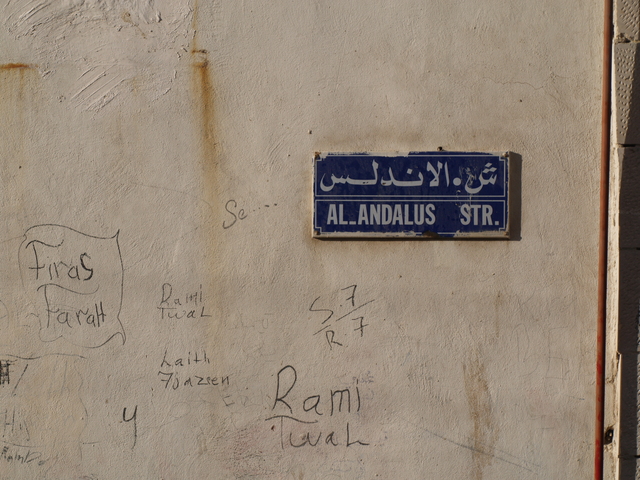 ش. الاندلس
AL_ANDALUS STR.
Se....
Firas
Farah
Rami
Twal
S.7
R 7
Laith
7jazeen
Rami
Twal
y